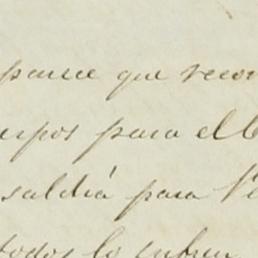 parece que
erpos para el
saldrá para
todos lo sufren